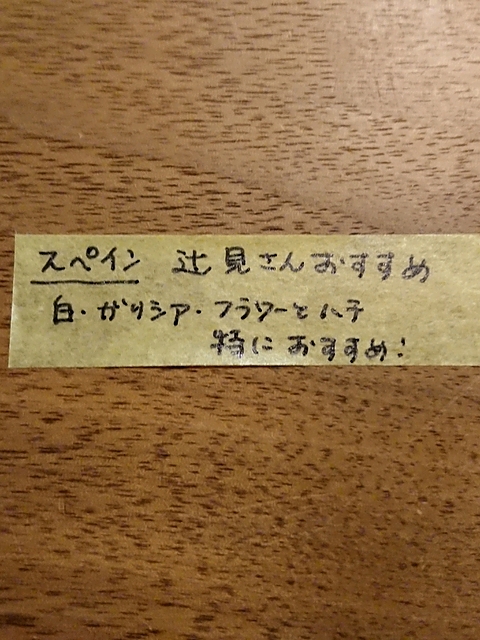 スペイン 辻見さんおすすめ
白・ガリシア・フラワーとハチ
特におすすめ!